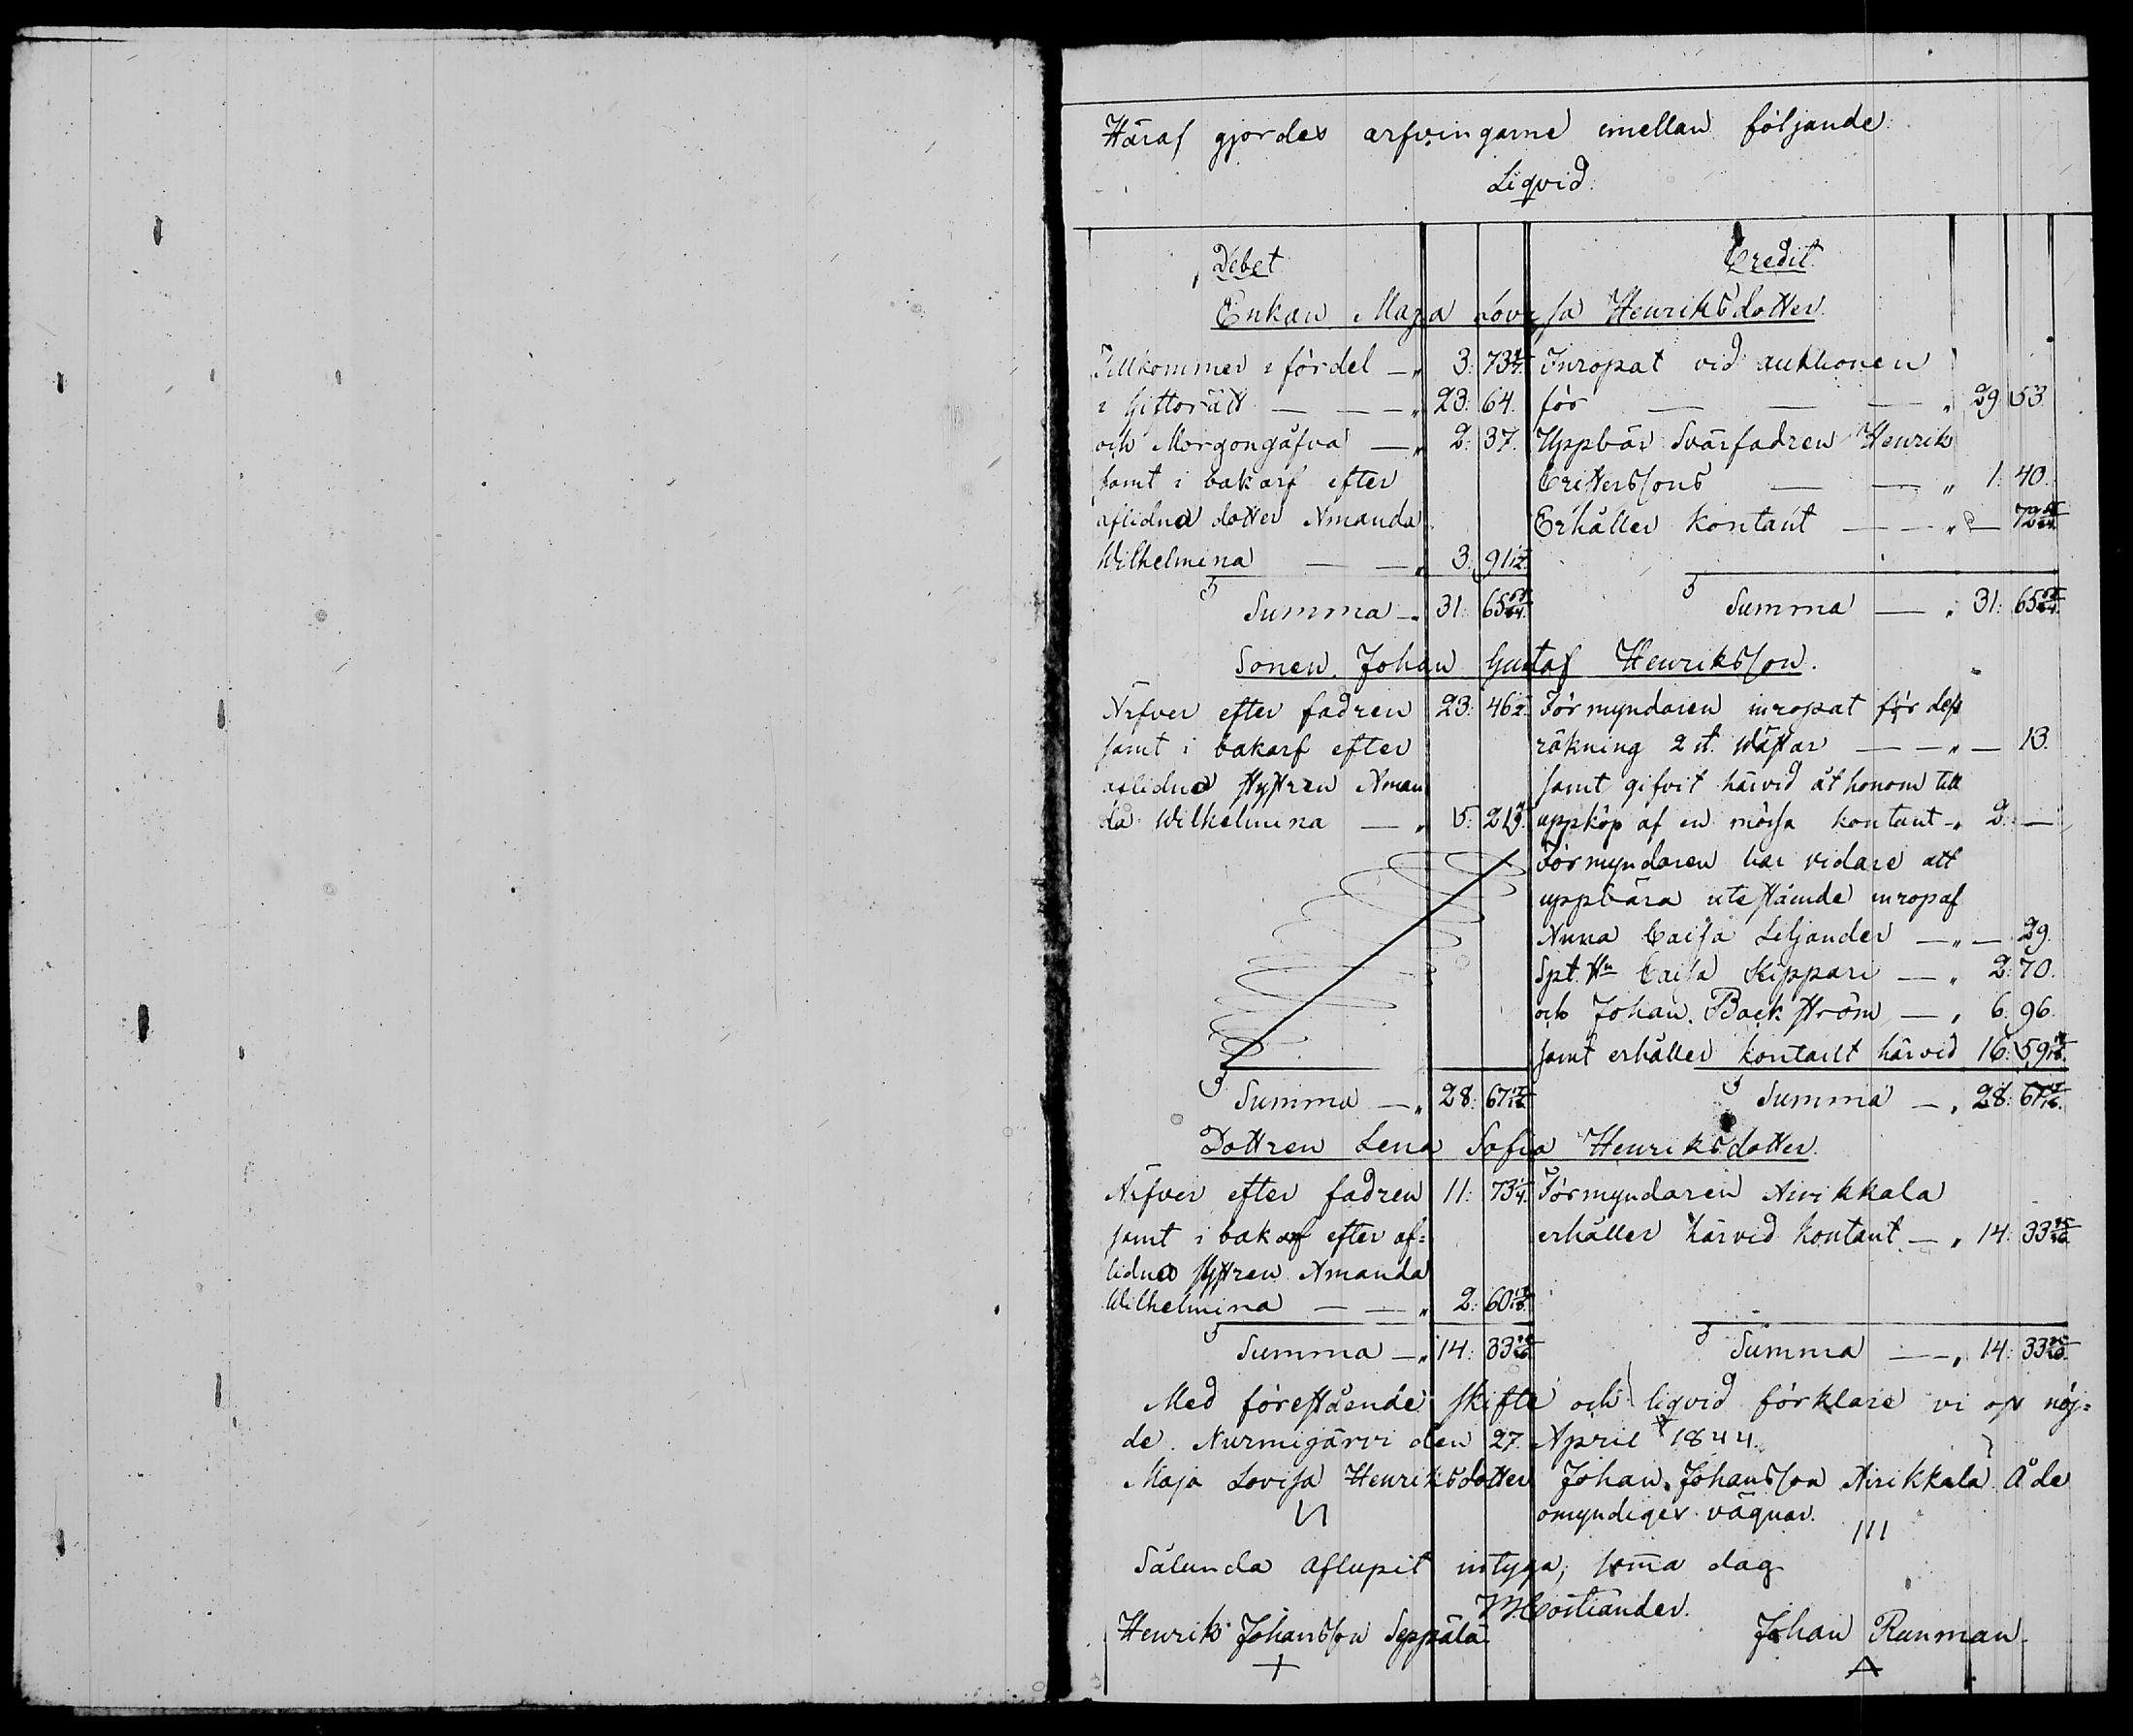 Häraf gjordes arfvingarne emellan följande
Liqvid.
Debet
Credit
Enkan Maja Lovisa Henriksdotter.
Tillkommer i fördel — " 3: 73
i Giftorätt — — — " 23: 64.
och Morgongåfva — " 2: 37.
samt i bakarf efter
aflidna dotter Amanda
Wilhelmina — — " 3: 91
Summa — 31: 65
Inropat vid auktionen
för — — — " 29: 53.
Uppbär Svärfadren Henrik
— — " 1: 40.
Erhåller kontant — — " —
Summa — " 31: 65
Sonen Johan Gustaf Henriksson.
Ärfver efter fadren 23: 46
samt i bakarf efter
aflidna systren Aman
da Wilhelmina — " 5: 21
Summa — " 28: 67
Förmyndaren inropat för dess
räkning 2 st. — — " — 13.
samt gifvit härvid åt honom till
uppköp af en mössa kontant " 2: —
Förmyndaren har vidare att
uppbära utestående inrop af
Anna Caisa Liljander — " — 29.
Caisa Kippari — " 2: 70.
och Johan Backström — " 6: 96.
samt erhåller kontant härvid 16: 59
Summa — " 28: 67
Dottren Lena Sofia Henriksdotter.
Ärfver efter fadren 11: 73
samt i bakarf efter af=
lidna systren Amanda
Wilhelmina — — " 2: 60
Summa — " 14: 33
Förmyndaren Airikkala
erhåller härvid kontant — " 14: 33
Summa — " 14: 33
Med förestående skifte och liqvid förklare vi oss nöj=
de. Nurmijärvi den 27. April 1844.
Maja Lovisa Henriksdotter Johan Johansson Airikkala Å de
omyndiges vägnar.
Sålunda aflupit intyga, samma dag
Henrik Johansson Seppälä Johan Runman